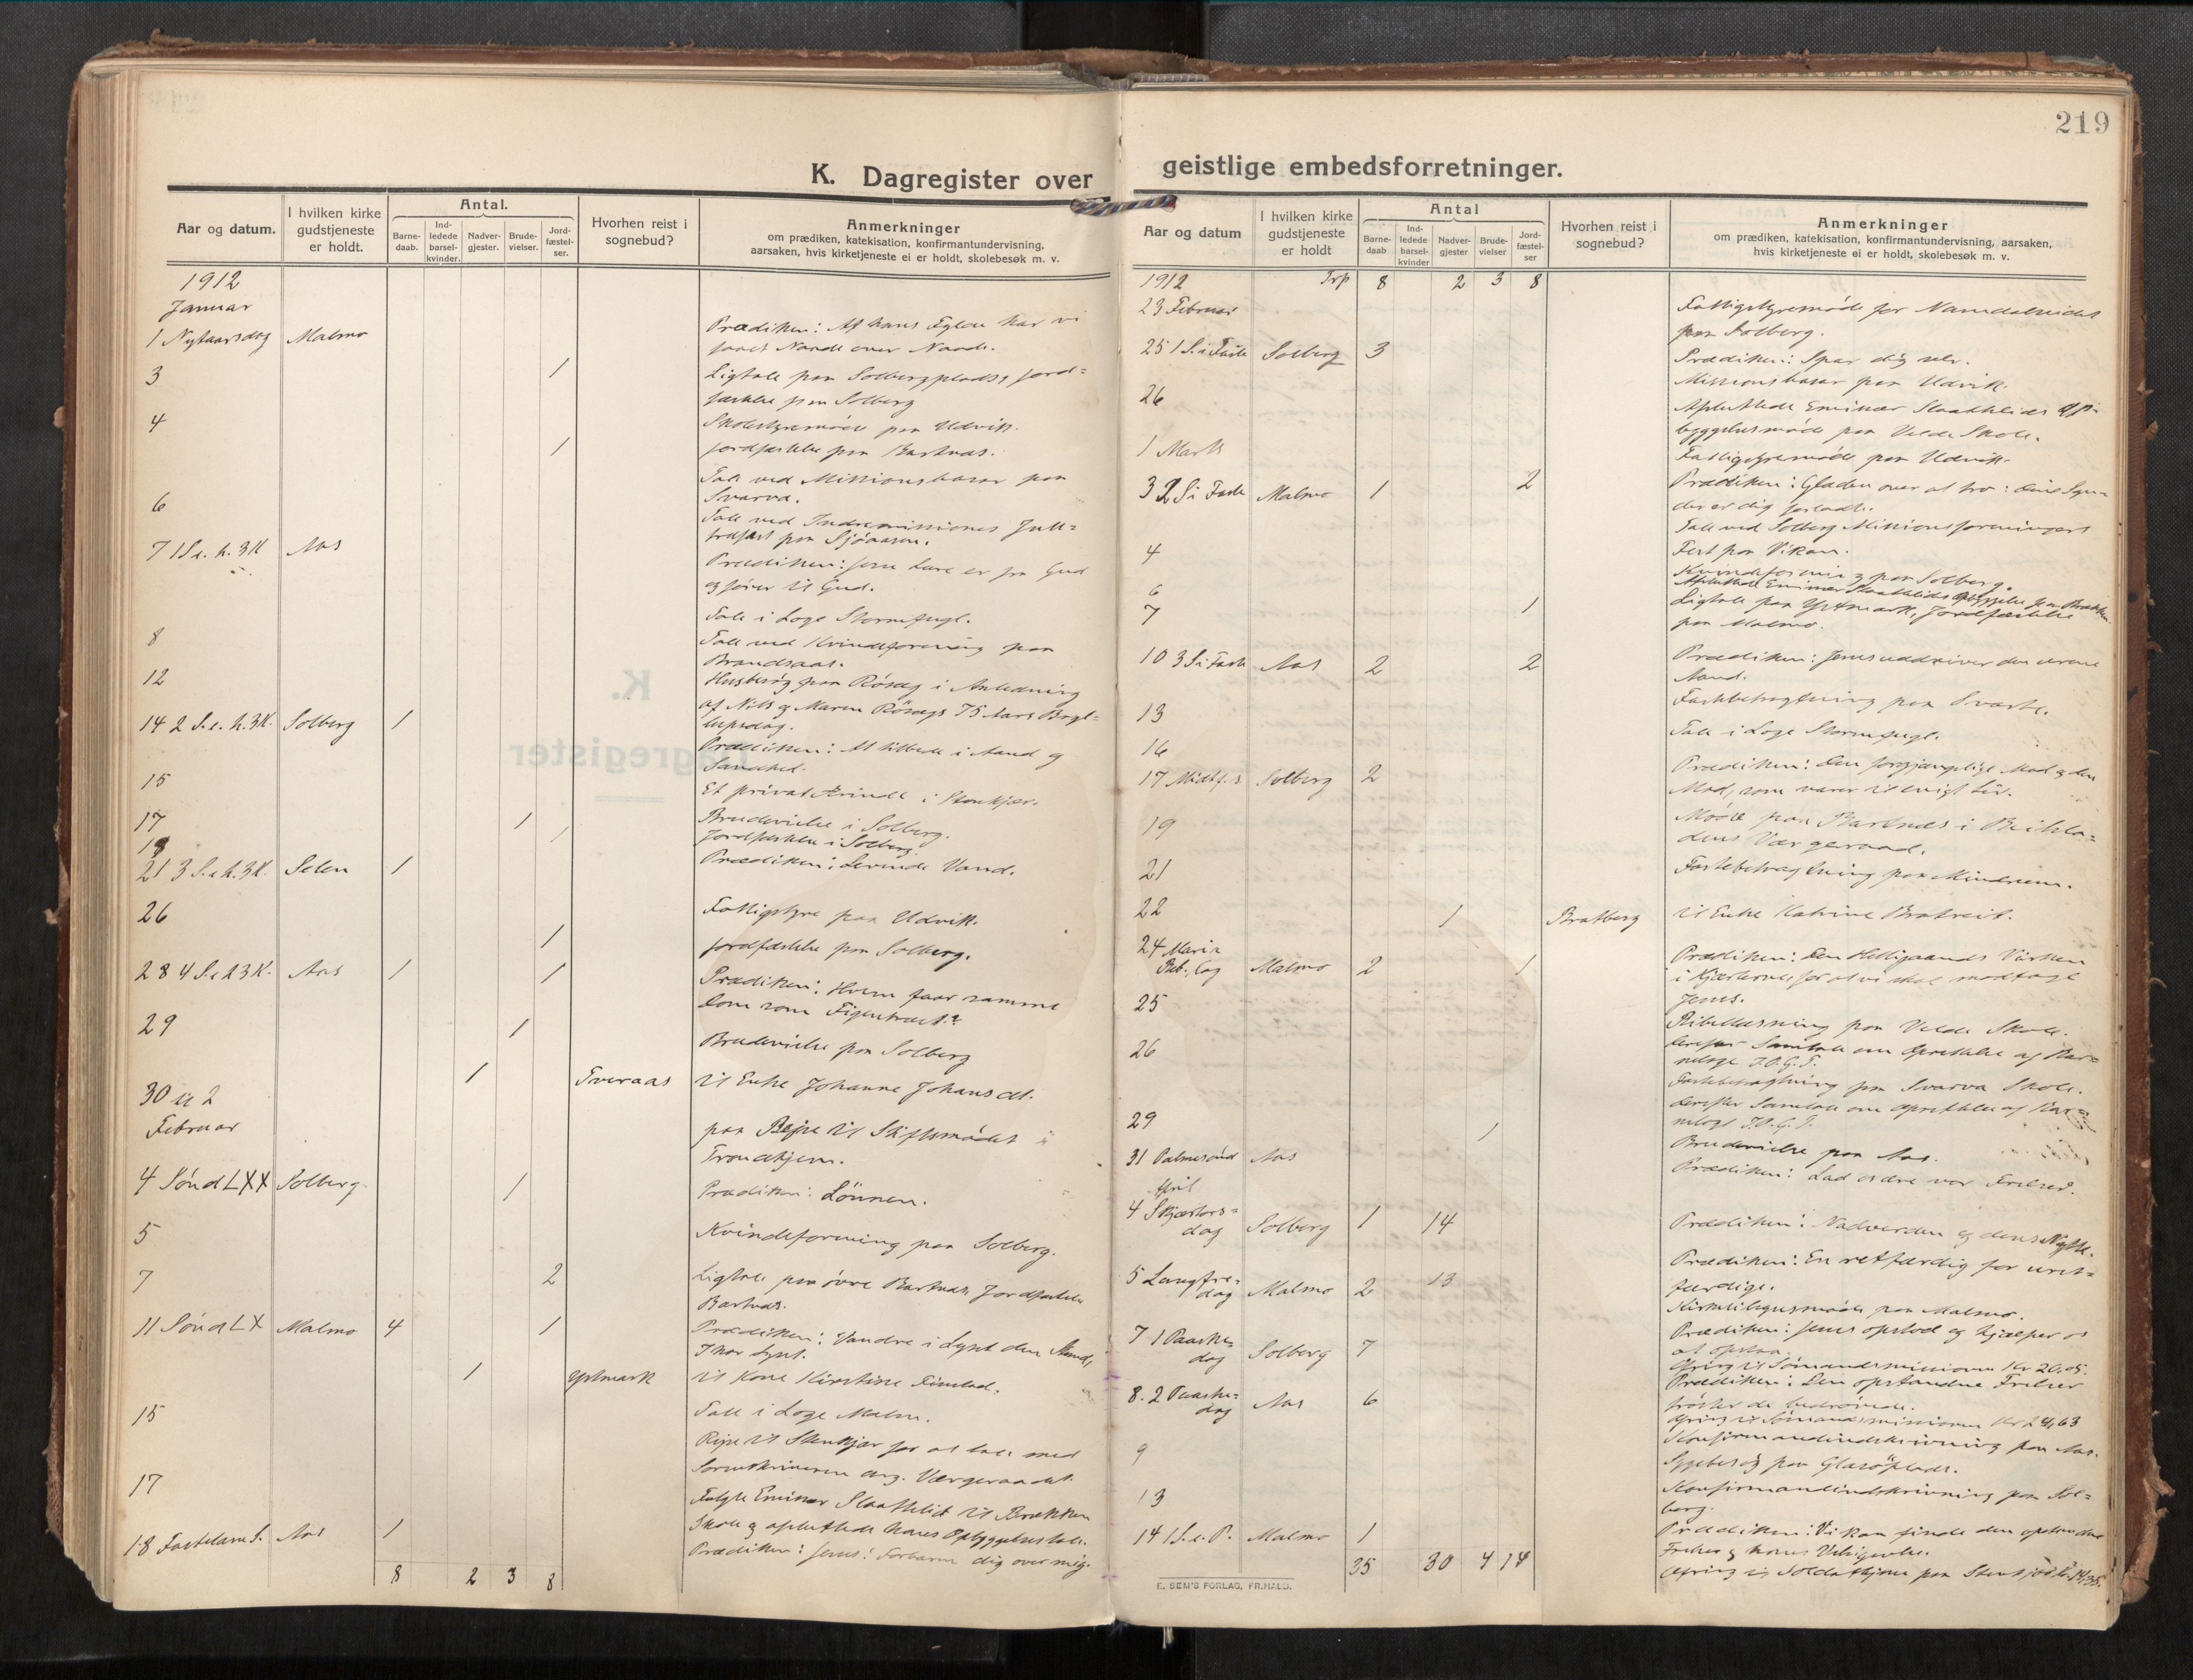 219
K. Dagregister over
geistlige embedsforretninger.
Aar og datum.
I hvilken kirke
gudstjeneste
er holdt.
Antal.
Barne-
daab.
Ind-
ledede
barsel-
kvinder.
Nadver-
gjester.
Brude-
vielser.
Jord-
fæstel-
ser.
Hvorhen reist i
sognebud?
Anmerkninger
om prædiken, katekisation, konfirmantundervisning,
aarsaken, hvis kirketjeneste ei er holdt, skolebesøk m. v.
1912
Januar
1 Nytaarsdag Malmo Prædiken: Af hans Fylde har vi
faaet Naade over Naade.
3 1 Ligtale paa Solbergplads, jord-
fæstelse paa Solberg
4 Skolestyremöde paa Udvik.
1 Jordfæstelse paa Bartnes.
Tale ved Missionsbasar paa
Svarva.
6 Tale ved Indremissionens Jule-
træfest paa Sjöaasen.
7 1 S. e. h. 3 K Aas Prædiken: Jesu Lære er fra Gud
og fører til Gud.
8 Tale i Loge Stormfugl.
Tale ved Kvindeforening paa
Brandsaas.
12 Husbesög paa Rösæg i Anledning
af Nils og Maren Rösægs 75 Aars Bryl-
lupsdag.
14 2 S. e. h. 3 K. Solberg 1 Prædiken: At tilbede i Aand og
Sandhed.
15 Et privat Ærinde i Stenkjær.
17 1 Brudevielse i Solberg.
18 1 Jordfæstelse i Solberg.
21 3 S. e. h. 3 K. Selen 1 Prædiken: Levende Vand.
26 Fattigstyre paa Udvik.
1 Jordfæstelse paa Solberg.
28 4 S. e. h 3 K. Aas 1 1 Prædiken: Hvem faar samme
Dom som Figentræet?
29 1 Brudevielse paa Solberg
1 Tveraas til Enke Johanne Johansdt.
30 til 2
Februar paa Rejse til Stiftsmödet
Trondhjem.
4 Sönd LXX Solberg 1 Prædiken: Lönnen.
5 Kvindeforening paa Solberg.
7 2 Ligtale paa övre Bartnes, Jordfæstelse
Bartnes.
11 Sönd LX Malmo 4 1 Prædiken: Vandre i Lyset den Stund,
I har Lyset.
1 Ystmark til Kone Kirstine Fimland.
15 Tale i Loge Malm.
Rejse til Stenkjær for at tale med
Sorenskriveren ang. Værgeraadet.
17 Fulgte Eminær Slaathlid til Brækken
Skole og afsluttede hans Opbyggelsestale.
18 Fastelavns S. Aas 1 Prædiken: Jesus! Forbarm dig over mig.
8 2 3 8
Aar og datum
I hvilken kirke
gudstjeneste
er holdt
Antal
Barne-
daab
Ind-
ledede
barsel-
kvinder
Nadver-
gjester
Brude-
vielser
Jord-
fæstel-
ser
Hvorhen reist i
sognebud?
Anmerkninger
om prædiken, katekisation, konfirmantundervisning, aarsaken,
hvis kirketjeneste ei er holdt, skolebesøk m. v.
1912 Trp 8 2 3 8
23 Februar Fattigstyremöde for Namdalseidet
paa Solberg.
25 1 S. i Faste Solberg 3 Prædiken: Spar dig selv.
Missionsbasar paa Udvik.
26 Afsluttede Eminær Slaathlids Op-
byggelsesmöde paa Velde Skole.
1 Marts Fattigstyremöde paa Udvik.
3 2 S i Faste Malmo 1 2 Prædiken: Glæden over at tro: dine Syn-
der er dig forladte.
4 Tale ved Solberg Missionsforenings
Fest paa Vikan.
6 Kvindeforening paa Solberg.
Afsluttede Eminær Slaathlids Opbyggelse paa Brækken.
7 1 Ligtale paa Ystmark, Jordfæstelse
paa Malmo.
10 3 S i Faste Aas 2 2 Prædiken: Jesus uddriver den urene
Aand.
13 Fastebetragtning paa Svarte.
16 Tale i Loge Stormfugl.
17 Midtf. s Solberg 2 Prædiken: Den forgjængelige Mad og den
Mad, som varer til evigt Liv.
19 Möde paa Bartnes i Beitsta-
dens Værgeraad.
21 Fastebetragtning paa Mindrum.
22 1 Bratberg til Enke Katrine Bratreit.
24 Maria
Beb. Dag Malmo 2 1 Prædiken: Den Helligaands Virken
i Hjerterne, for at vi skal modtage
Jesus.
25 Bibellæsning paa Velde Skole.
derefter Samtale om Oprettelse af Bar-
neloge I.O.G.T.
26 Fastebetragtning paa Svarva Skole.
derefter Samtale om Oprettelse af Bar-
neloge I.O.G.T.
29 1 Brudevielse paa Aas.
31 Palmesönd Aas Prædiken: Lad os ære vor Frelser.
April
4 Skjærtors-
dag Solberg 1 14 Prædiken: Nadverden og dens Nytte.
5 Langfre-
dag Malmo 2 13 Prædiken: En retfærdig for uret-
færdige.
Kirketilsynsmöde paa Malmo.
7 1 Paaske-
dag Solberg 7 Prædiken: Jesus opstod og hjælper os
at opstaa.
Ofring til Sömandsmissionen Kr 20,05.
8. 2 Paaske-
dag Aas 6 Prædiken: Den opstandne Frelser
tröster de bedrövede.
Ofring til Sömandsmissionen Kr 24,63
9 Konfirmandindskrivning paa Aas.
Sygebesög paa Glasöplads.
13 Konfirmandindskrivning paa Sol-
berg.
14 1 S. e. P. Malmo 1 Prædiken: Vi kan finde den opstandne
Frelser og hans Velsignelse.
Ofring til Soldathjem paa Stenkjær
35 30 4 14
E. SEM'S FORLAG, FR.HALD.